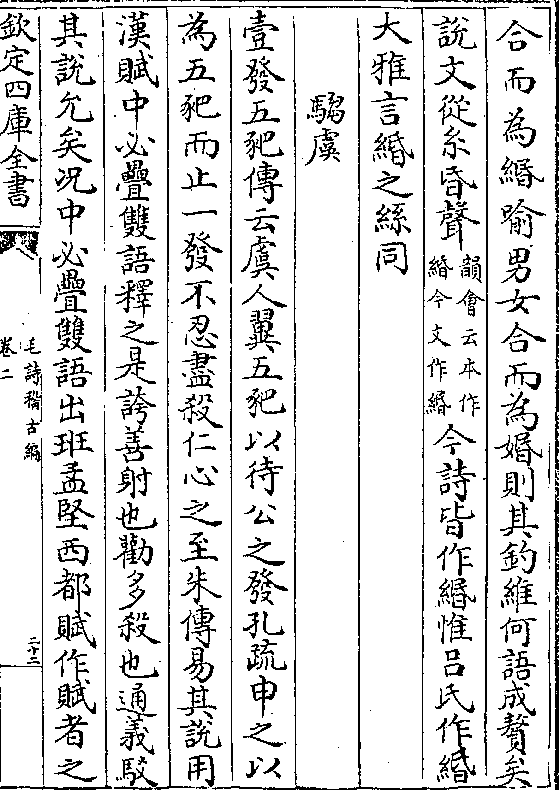 合而為緡喻男女合而為婚則其釣維何語成贅矣
說文從糸昏聲韻會云本作緡今文作緍今詩皆作緡惟呂氏作緍
大雅言緡之絲同
騶虞
壹發五豝傳云虞人翼五豝以待公之發孔疏申之以
為五豝而止一發不忍盡殺仁心之至朱傳易其說用
漢賦中必疊雙語釋之是誇善射也勸多殺也通義駮
其說允矣况中必疊雙語出班孟堅西都賦作賦者之
欽定四庫全書
毛詩稽古編
卷二
二十二